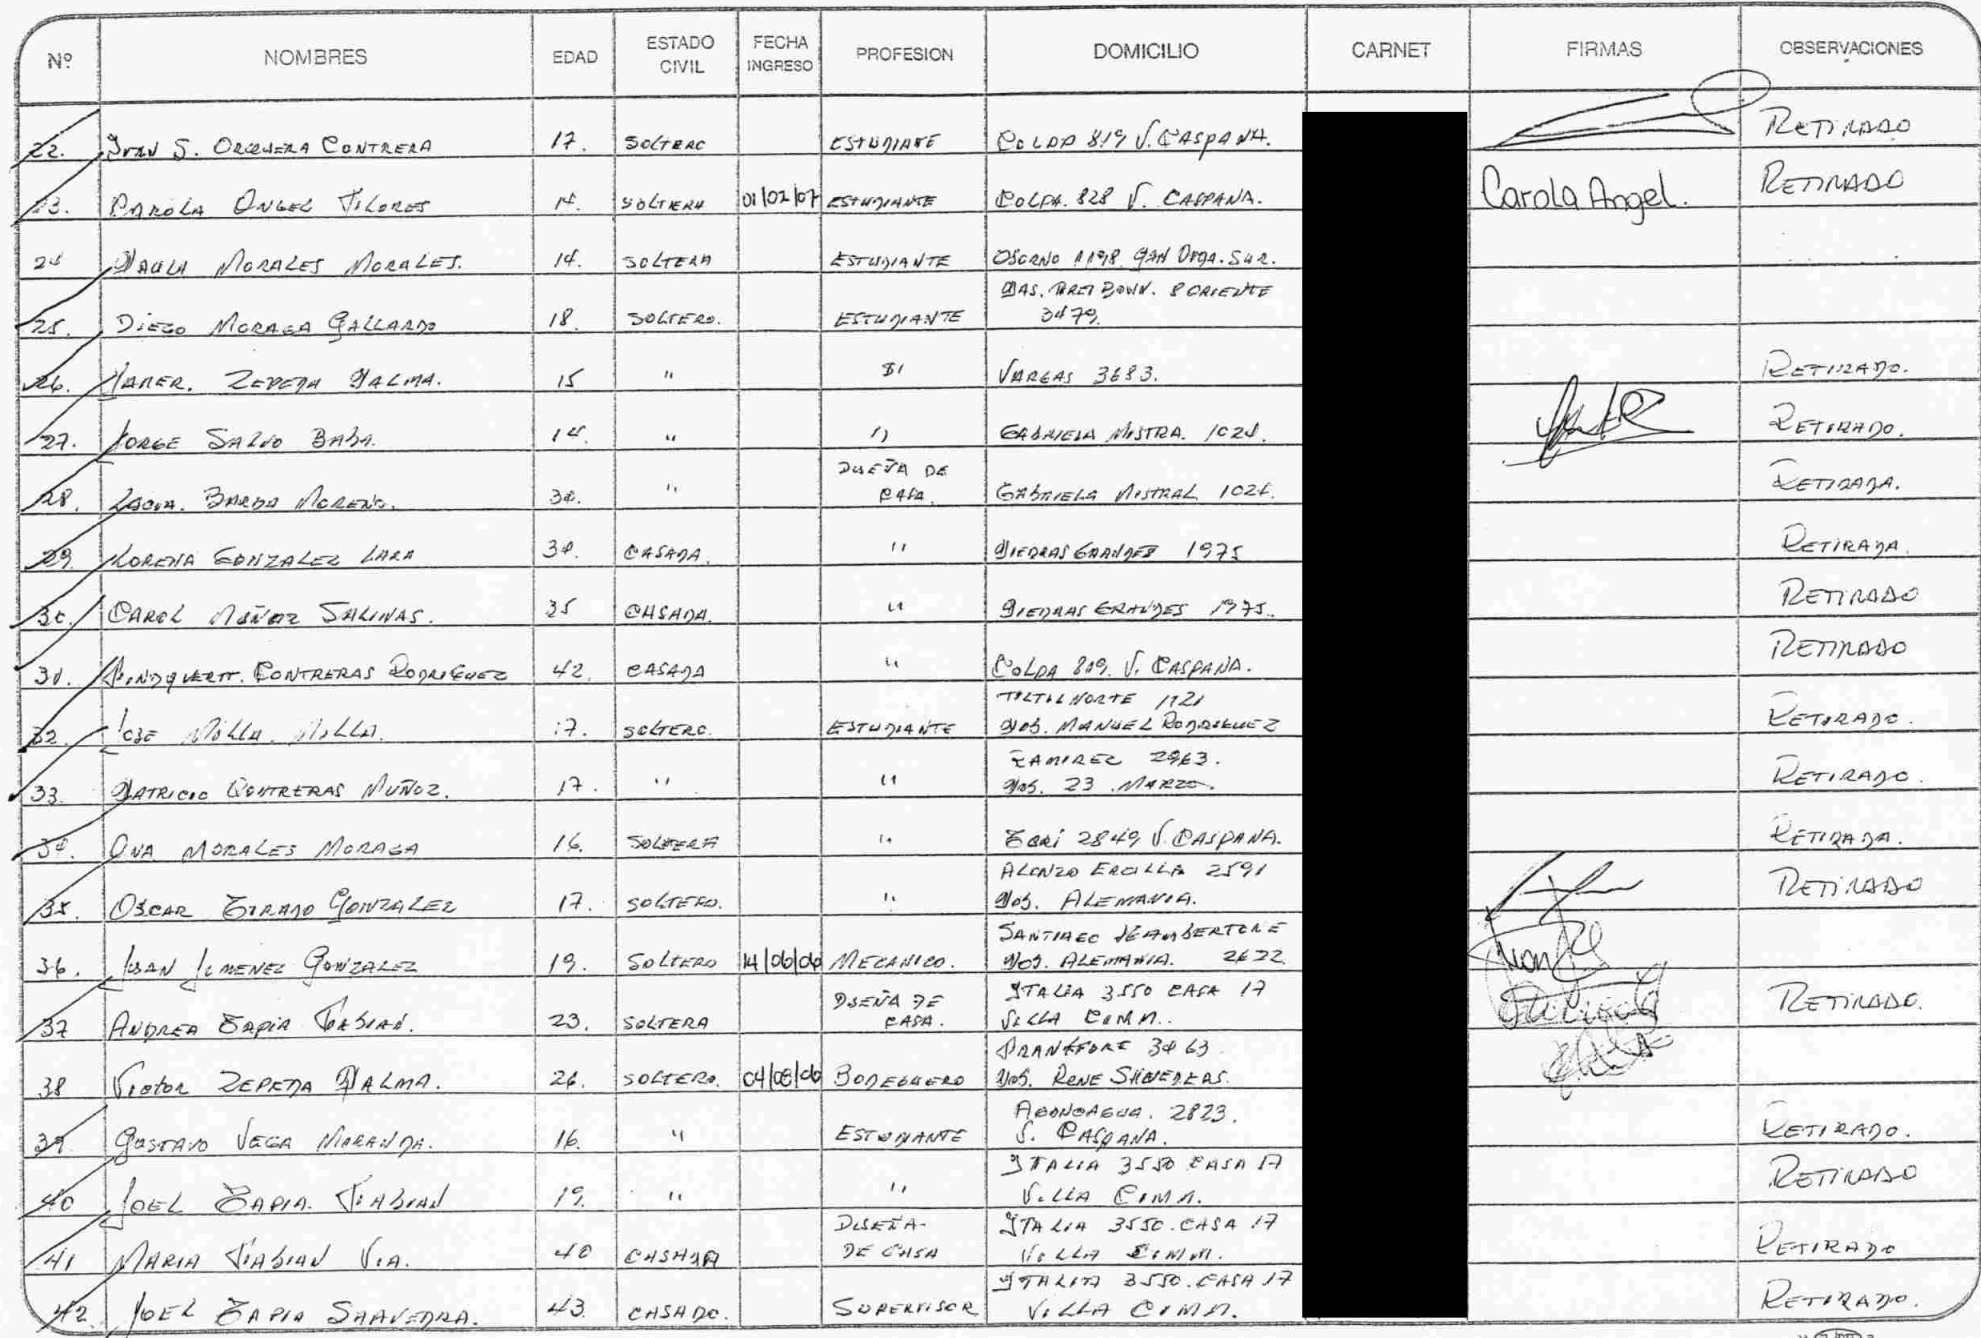 Nº NOMBRES EDAD ESTADO CIVIL FECHA INGRESO PROFESION DOMICILIO CARNET FIRMAS OBSERVACIONES
22. S. ORQUERA CONTRERA 17. SOLTERO ESTUDIANTE COLPA 819 V. CASPANA. RETIRADO
23. CAROLA ANGEL FLORES 14. SOLTERA 01/02/07 ESTUDIANTE COLPA. 828 V. CASPANA. Carola Angel. RETIRADO
24 PAULA MORALES MORALES. 14. SOLTERA ESTUDIANTE OSORNO 1198 SUR.
25. DIEGO MORAGA GALLARDO 18 SOLTERO. ESTUDIANTE 8 ORIENTE 3479.
26. ZEPEDA PALMA. 15 " VARGAS 3683. RETIRADO.
27. JORGE SALVO 14. " " GABRIELA MISTRA. 1024. RETIRADO.
28. MORENO. 30. " DUEÑA DE CASA. GABRIELA MISTRAL 1024. RETIRADA.
29. LORENA GONZALEZ LARA 30. CASADA. " PIEDRAS GRANDES 1975 RETIRADA.
30. CAROL MUÑOZ SALINAS. 35 CASADA. " PIEDRAS GRANDES 1975. RETIRADO
31. CONTRERAS RODRIGUEZ 42. CASADA " COLPA 819. V. CASPANA. RETIRADO
32. JOSE MILLA MILLA. 17. SOLTERO. ESTUDIANTE TILTIL NORTE 1121 POB. MANUEL RODRIGUEZ RETIRADO.
33 PATRICIO CONTRERAS MUÑOZ. 17. " " RAMIREZ 2963. POB. 23 MARZO. RETIRADO.
34. ANA MORALES MORAGA 16. SOLTERA " 2849 V. CASPANA. RETIRADA.
35. OSCAR TIRADO GONZALEZ 17. SOLTERO. " ALONZO ERCILLA 2591 POB. ALEMANIA. RETIRADO
36. JUAN JIMENEZ GONZALEZ 19. SOLTERO 14/06/06 MECANICO. SANTIAGO POB. ALEMANIA. 2622.
37 ANDREA TAPIA FABIAN. 23. SOLTERA DUEÑA DE CASA. ITALIA 3550 CASA 17 VILLA RETIRADO.
38 VICTOR ZEPEDA PALMA. 26. SOLTERO. 04/08/06 BODEGUERO FRANKFORT 3463 POB. RENE
39 GUSTAVO VEGA MIRANDA. 16. " ESTUDIANTE ACONCAGUA. 2823. V. CASPANA. RETIRADO.
40 JOEL TAPIA. FABIAN 19. " " ITALIA 3550 CASA 17 VILLA RETIRADO
41 MARIA FABIAN VIA. 40 CASADA DUEÑA DE CASA ITALIA 3550. CASA 17 VILLA RETIRADO
42. JOEL TAPIA SAAVEDRA. 43. CASADO. SUPERVISOR ITALIA 3550. CASA 17 VILLA RETIRADO.